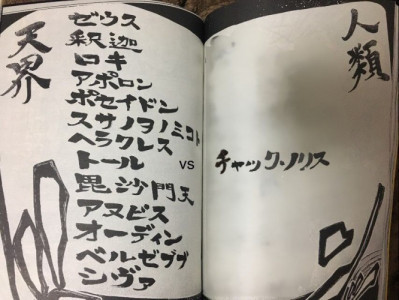 人類
天界
ゼウス
釈迦
ロキ
アポロン
ポセイドン
スサノヲノミコト
ヘラクレス
トール
毘沙門天
アヌビス
オーディン
ベルゼブブ
シヴァ
VS
チャック・ノリス